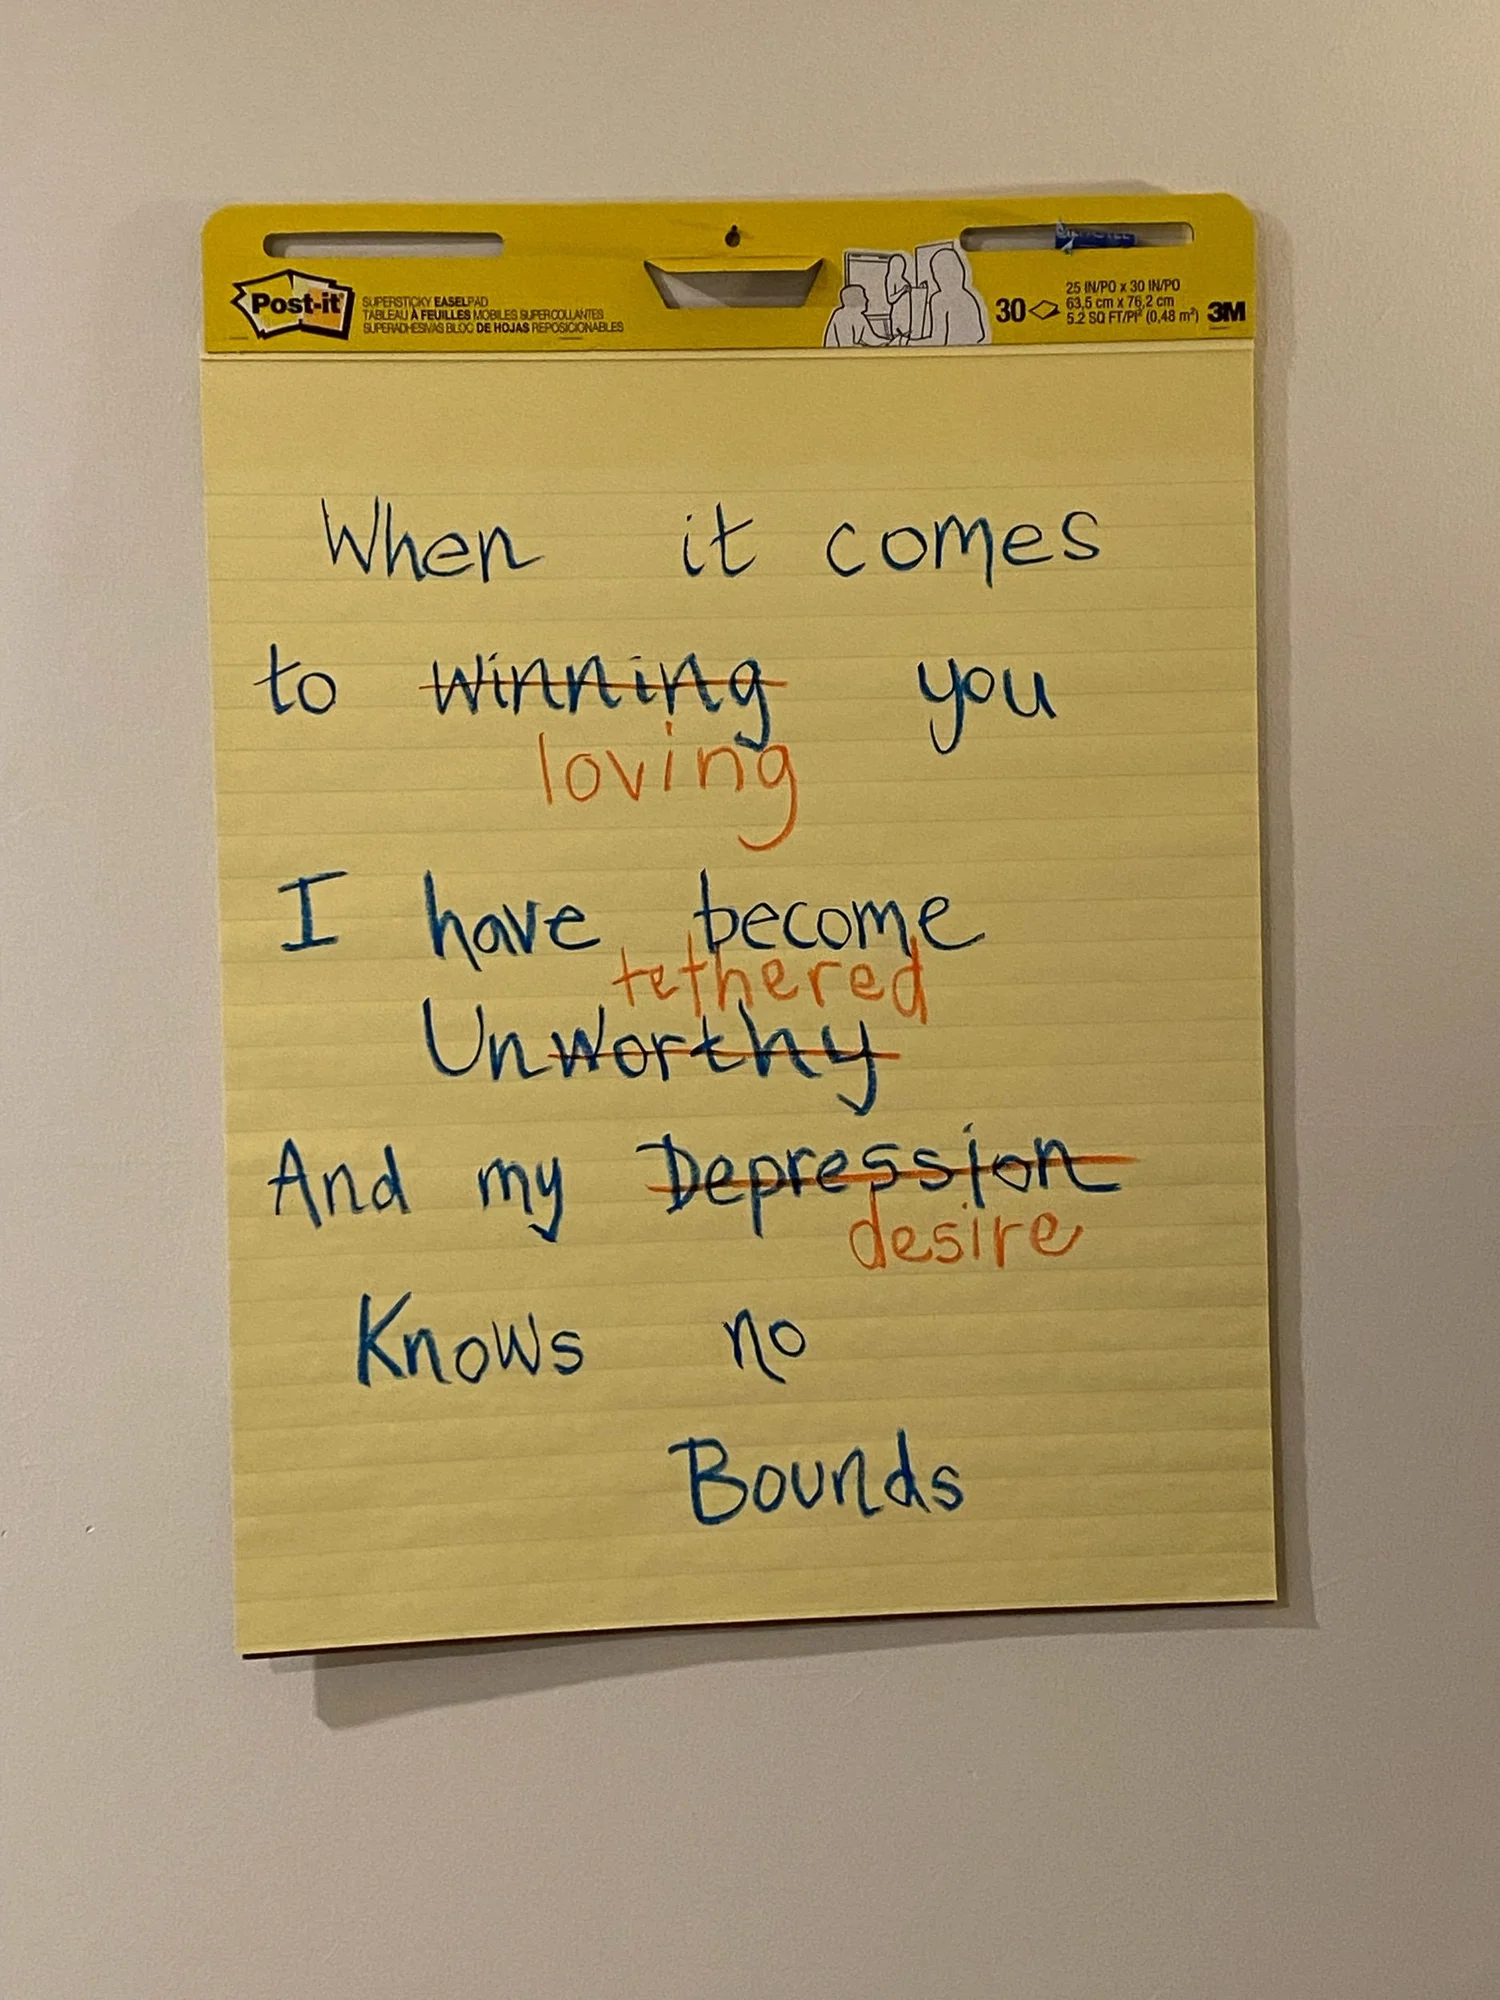 Post-it
SUPERSTICKY EASELPAD
TABLEAU À FEUILLES MOBILES SUPERCOLLANTES
SUPERADHESIVAS BLOC DE HOJAS REPOSICIONABLES
30
25 IN/PO x 30 IN/PO
63,5 cm x 76,2 cm
5.2 SQ FT/PI² (0,48 m²)
3M
When it comes
to winning you
loving
I have become
tethered
Unworthy
And my Depression
desire
Knows no
Bounds